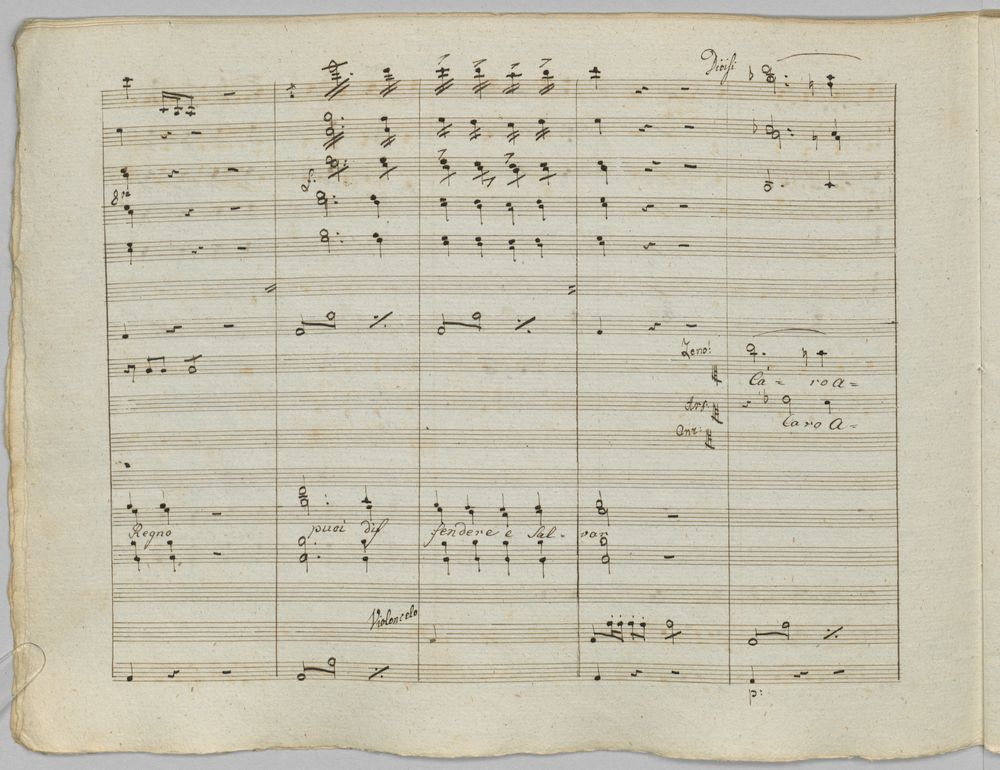 Divisi
8va
Zeno:
Ca = ro a =
Ars:
Caro a =
Ant:
Regno puoi dif fendere e Sal - var
Violoncelo
p: